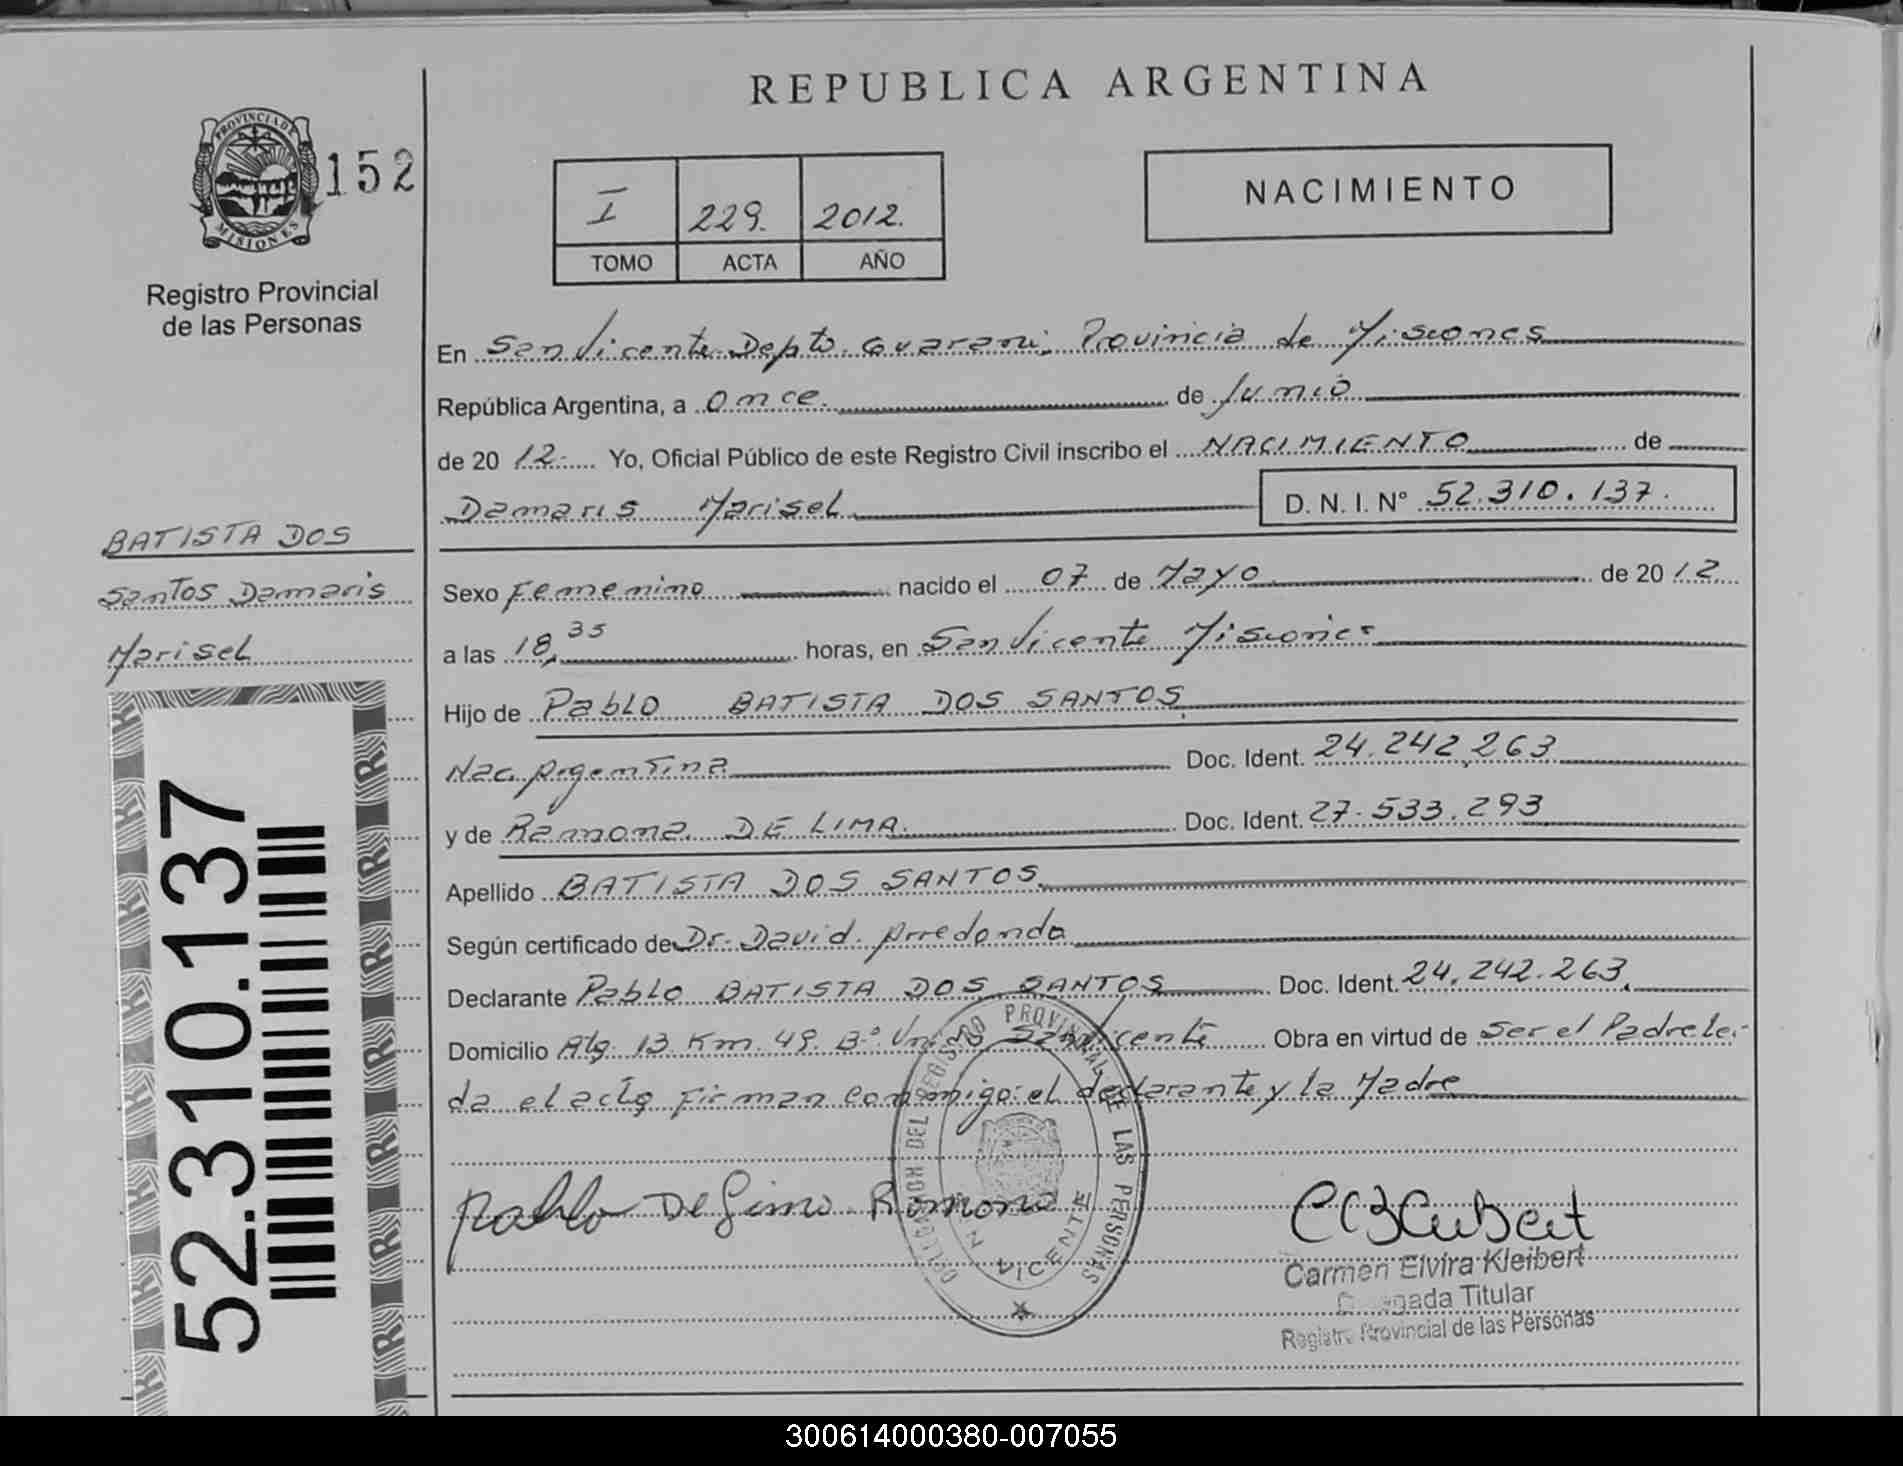 REPUBLICA ARGENTINA
PROVINCIA DE
MISIONES
152
Registro Provincial
de las Personas
I 229. 2012.
TOMO ACTA AÑO
NACIMIENTO
En San Vicente Depto. Guarani, Provincia de Misiones
República Argentina, a once. de Junio
de 20 12. Yo, Oficial Público de este Registro Civil inscribo el NACIMIENTO de
Damaris Marisel D. N. I. N° 52.310.137.
BATISTA DOS
Santos Damaris
Marisel
Sexo Femenino nacido el 07 de Mayo de 20 12
a las 18,35 horas, en San Vicente Misiones
Hijo de Pablo BATISTA DOS SANTOS
Nac. Argentina Doc. Ident. 24.242.263
y de Ramona DE LIMA. Doc. Ident. 27.533.293
Apellido BATISTA DOS SANTOS
Según certificado de Dr. David Arredondo
Declarante Pablo BATISTA DOS SANTOS Doc. Ident. 24.242.263.
Domicilio 13 Km. 49. B° San Vicente Obra en virtud de Ser el Padre le
da el acta Firman conmigo: el declarante y la Madre
DELEGACION DEL REGISTRO PROVINCIAL DE LAS PERSONAS
VICENTE
Pablo De Lima Ramona
Carmen Elvira Kleibert
Delegada Titular
Registro Provincial de las Personas
52.310.137
300614000380-007055